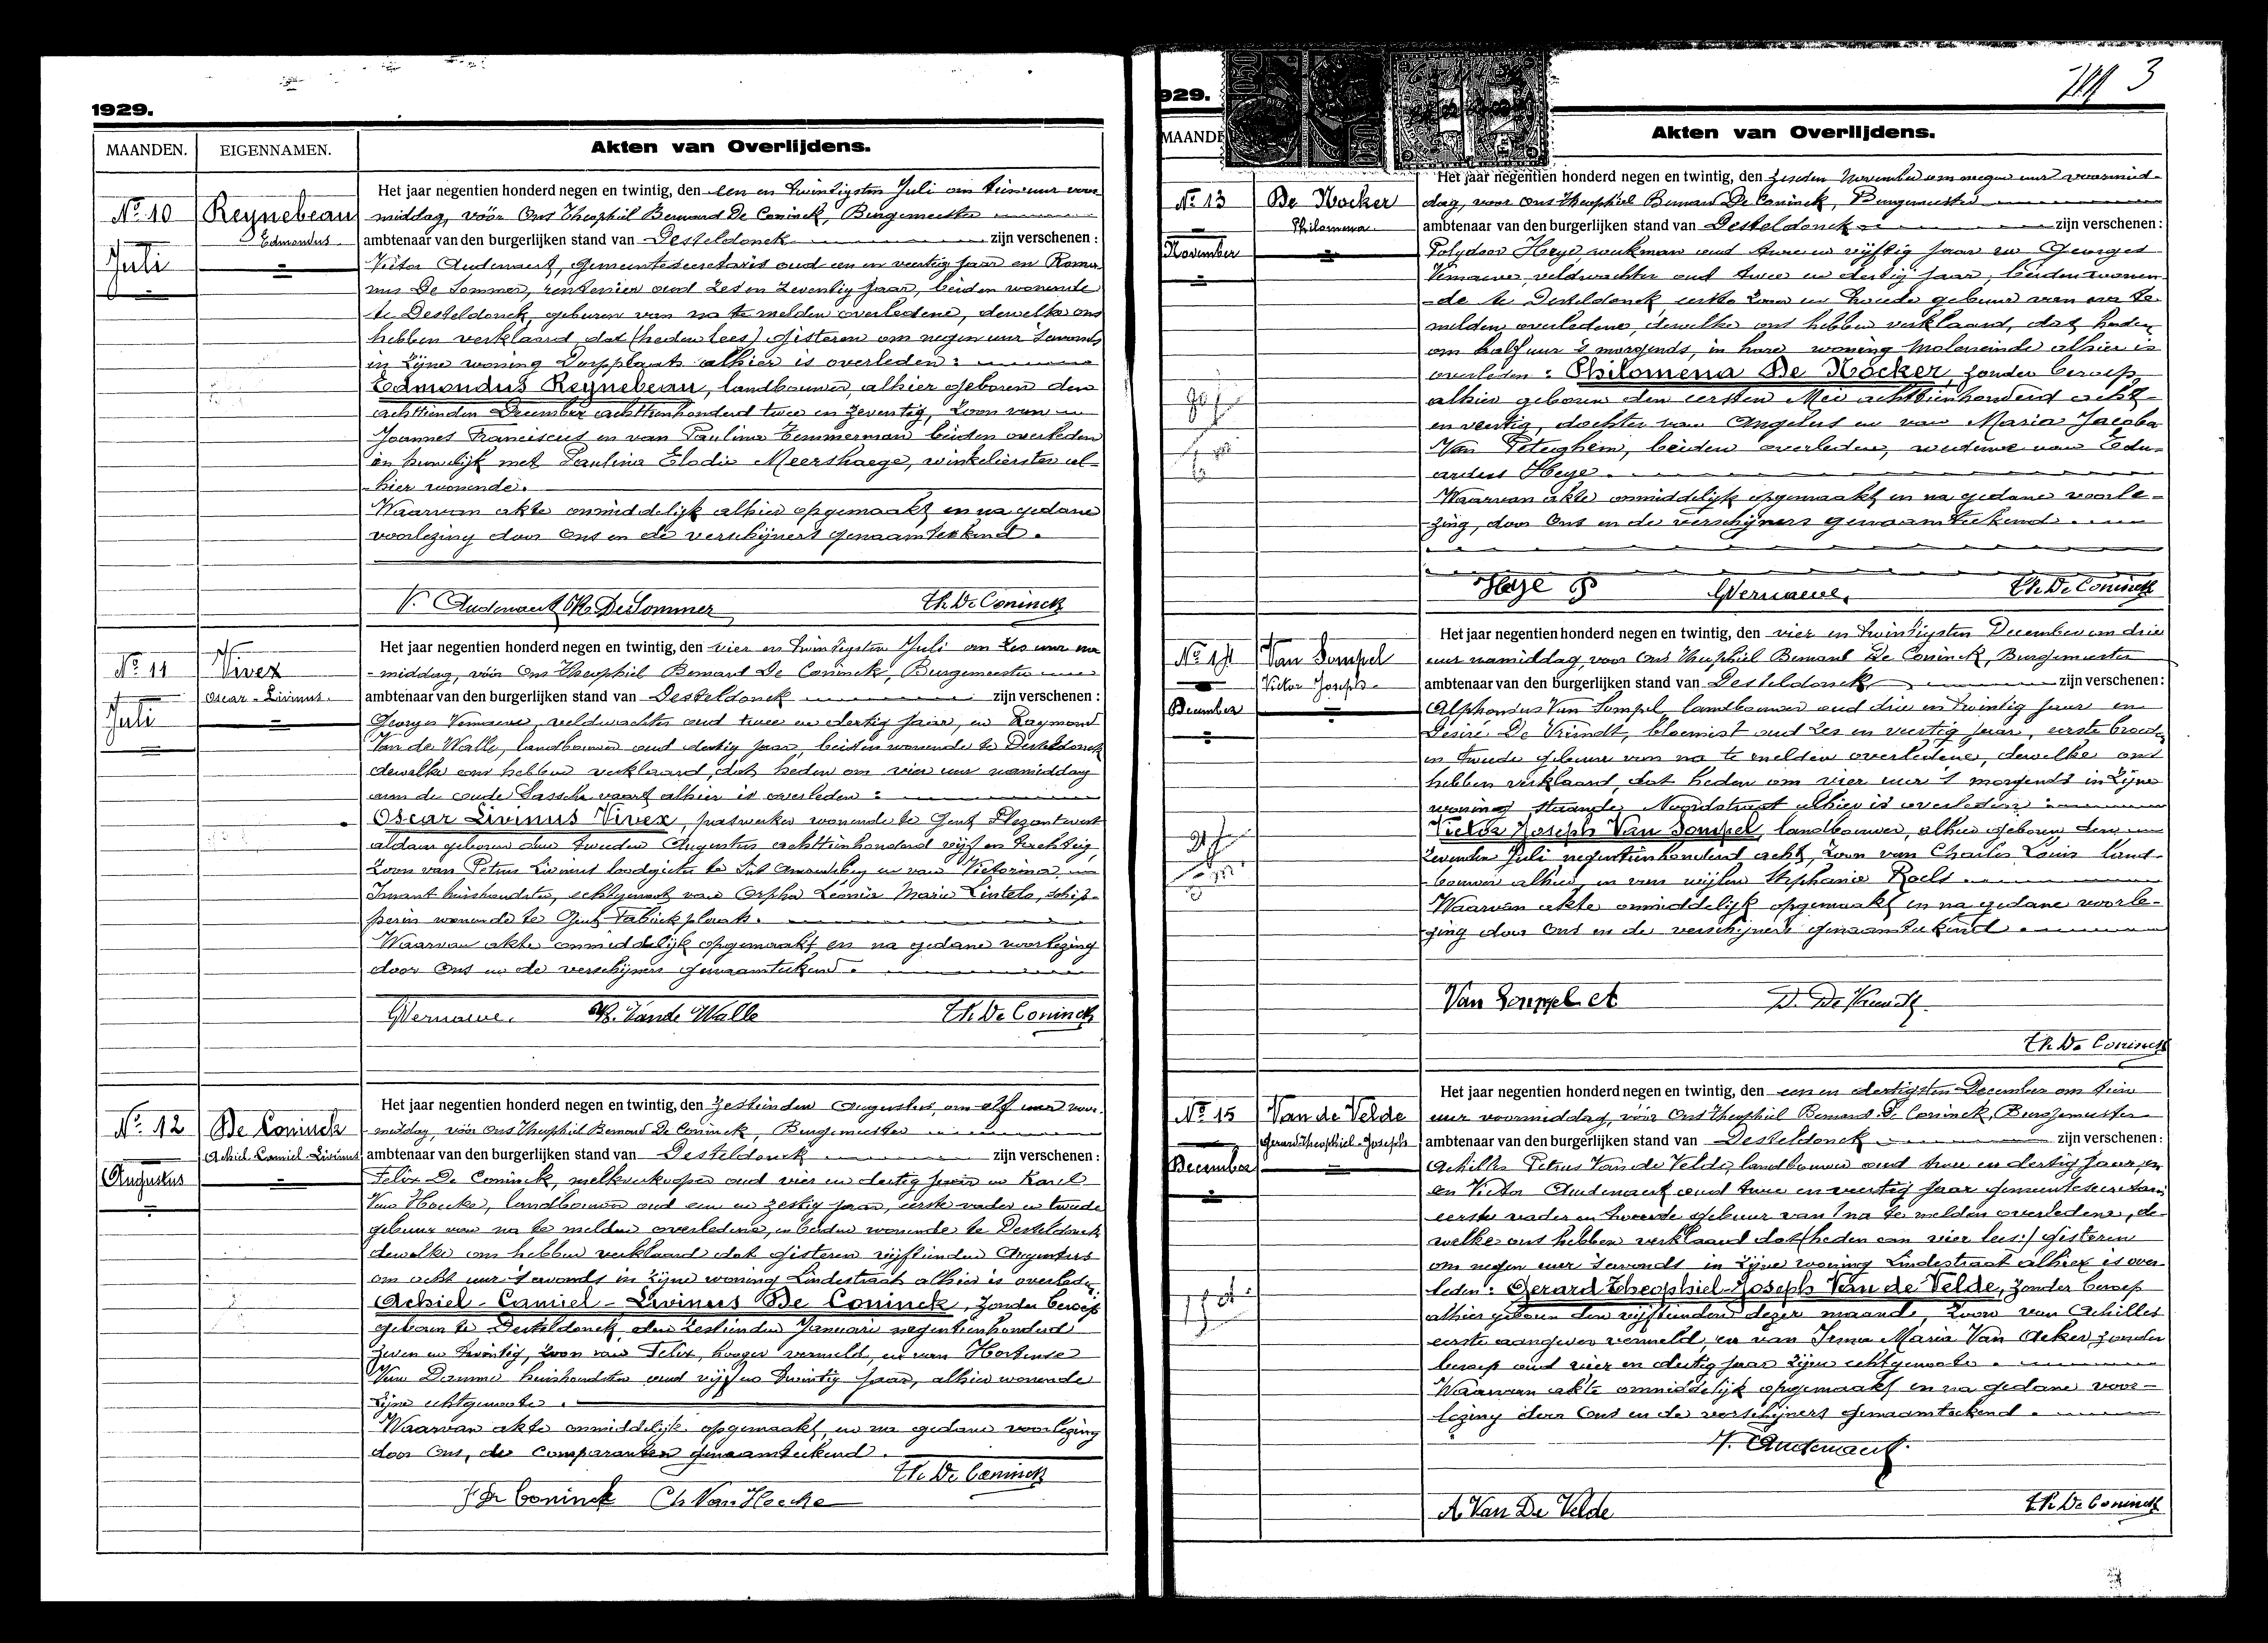 1929.
MAANDEN. EIGENNAMEN. Akten van Overlijdens.
No 10
Juli
Reynebeau
Edmondus
Het jaar negentien honderd negen en twintig, den een en twintigsten Juli om tien uur voor
middag, vóór Ons Theophiel Bernard De Coninck, Burgemeester
ambtenaar van den burgerlijken stand van Desteldonck zijn verschenen:
Victor Audenaert, gemeentesecretaris oud een en veertig jaar en Roma-
nus De Sommer, rentenier oud zes en zeventig jaar, beiden wonende
te Desteldonck, geburen van na te melden overledene, dewelke ons
hebben verklaard, dat (heden lees) gisteren om negen uur 's avonds
in zijne woning Dorpplaats alhier is overleden:
Edmondus Reynebeau, landbouwer, alhier geboren den
achttienden December achttienhonderd twee en zeventig, zoon van
Joannes Franciscus en van Paulina Temmerman beiden overleden
in huwelijk met Paulina Elodie Meershaege, winkelierster al-
hier wonende.
Waarvan akte onmiddelijk alhier opgemaakt en na gedane
voorlezing door Ons en de verschijners genaamteekend.
V. Audenaert R. De Sommer Th. De Coninck
No 11
Juli
Vivex
Oscar-Livinus
Het jaar negentien honderd negen en twintig, den vier en twintigsten Juli om zes uur na
middag, vóór Ons Theophiel Bernard De Coninck, Burgemeester
ambtenaar van den burgerlijken stand van Desteldonck zijn verschenen:
Georges Vernaeve, veldwachter oud twee en dertig jaar, en Raymond
Van de Walle, landbouwer oud dertig jaar, beiden wonende te Desteldonck
dewelke ons hebben verklaard, dat heden om vier uur namiddag
aan de oude Sassche vaart alhier is overleden:
Oscar Livinus Vivex, wonende te Gent
aldaar geboren den tweeden Augustus achttienhonderd vijf en tachtig,
zoon van Petrus Livinus loodgieter te Sint Amandsberg en van Victorina
huishoudster, echtgenoot van Orpha Leonia Maria Lintelo, schip-
perin wonende te Gent Fabriekplaats.
Waarvan akte onmiddelijk opgemaakt en na gedane voorlezing
door Ons en de verschijners genaamteekend.
G. Vernaeve. R. Van de Walle Th. De Coninck
No 12
Augustus
De Coninck
Achiel-Camiel-Livinus
Het jaar negentien honderd negen en twintig, den zestienden Augustus, om elf uur voor-
middag, vóór Ons Theophiel Bernard De Coninck, Burgemeester
ambtenaar van den burgerlijken stand van Desteldonck zijn verschenen:
Felix De Coninck, melkverkooper oud vier en dertig jaar en Karel
Van Hoecke, landbouwer oud een en zestig jaar, eerste vader en tweede
gebuur van na te melden overledene, en beiden wonende te Desteldonck
dewelke ons hebben verklaard dat gisteren vijftienden Augustus
om acht uur 's avonds in zijne woning Lindestraat alhier is overleden,
Achiel-Camiel-Livinus De Coninck, zonder beroep
geboren te Desteldonck, den zestienden Januari negentienhonderd
zeven en twintig, zoon van Felix, hooger vermeld, en van Hortense
Van Damme huishoudster oud vijf en twintig jaar, alhier wonende
zijne echtgenoote.
Waarvan akte onmiddelijk opgemaakt, en na gedane voorlezing
door Ons, de Comparanten genaamteekend.
Th. De Coninck
F De Coninck Ch. Van Hoecke
929.
3
MAANDE Akten van Overlijdens.
No 13
November
De Nocker
Philomena
Het jaar negentien honderd negen en twintig, den zesden November om negen uur voormid-
dag, voor Ons Theophiel Bernard De Coninck, Burgemeester
ambtenaar van den burgerlijken stand van Desteldonck zijn verschenen:
Polydoor Heye, werkman oud twee en vijftig jaar en Georges
Vernaeve, veldwachter oud twee en dertig jaar, beiden wonen-
de te Desteldonck eerste zoon en tweede gebuur van na te
melden overledene, dewelke ons hebben verklaard, dat heden
om half uur 's morgends, in hare woning Moleneinde alhier is
overleden: Philomena De Nocker, zonder beroep
alhier geboren den eersten Mei achttienhonderd acht-
en veertig, dochter van Angelus en van Maria Jacoba
Van Peteghem, beiden overleden, weduwe van Edu-
ardus Heye.
Waarvan akte onmiddelijk opgemaakt en na gedane voorle-
zing, door Ons en de verschijners genaamteekend.
Heye P G. Vernaeve, Th. De Coninck
No 14
December
Van Sompel
Victor Joseph
Het jaar negentien honderd negen en twintig, den vier en twintigsten December om drie
uur namiddag, voor Ons Theophiel Bernard De Coninck, Burgemeester
ambtenaar van den burgerlijken stand van Desteldonck zijn verschenen:
Alphonsus Van Sompel, landbouwer oud drie en twintig jaar en
Desiré De Vriendt, bloemist oud zes en veertig jaar, eerste broeder
en tweede gebuur van na te melden overledene, dewelke ons
hebben verklaard, dat heden om vier uur 's morgends in zijne
woning staande Noordstraat alhier is overleden:
Victor Joseph Van Sompel, landbouwer, alhier geboren den
zevenden Juli negentienhonderd acht, zoon van Charles Louis land-
bouwer alhier en van wijlen Stephanie Roels
Waarvan akte onmiddelijk opgemaakt en na gedane voorle-
zing door Ons en de verschijners genaamteekend
Van Sompel A D. De Vriendt.
Th. De Coninck
No 15
December
Van de Velde
Gerard-Theophiel-Joseph
Het jaar negentien honderd negen en twintig, den een en dertigsten December om tien
uur voormiddag, vóór Ons Theophiel Bernard De Coninck, Burgemeester
ambtenaar van den burgerlijken stand van Desteldonck zijn verschenen:
Achilles Petrus Van de Velde, landbouwer oud twee en dertig jaar, en
en Victor Audenaert oud twee en veertig jaar gemeentesecretaris
eerste vader en tweede gebuur van na te melden overledene, de-
welke ons hebben verklaard dat (heden om vier lees:) gisteren
om negen uur 's avonds in zijne woning Lindestraat alhier is over-
leden: Gerard-Theophiel-Joseph Van de Velde, zonder beroep
alhier geboren den vijftienden dezer maande, zoon van Achilles
eerste aangever vermeld, en van Irma Maria Van Acker zonder
beroep oud vier en dertig jaar zijne echtgenoote.
Waarvan akte onmiddelijk opgemaakt en na gedane voor-
lezing door Ons en de verschijners genaamteekend.
V. Audenaert.
A. Van De Velde Th. De Coninck